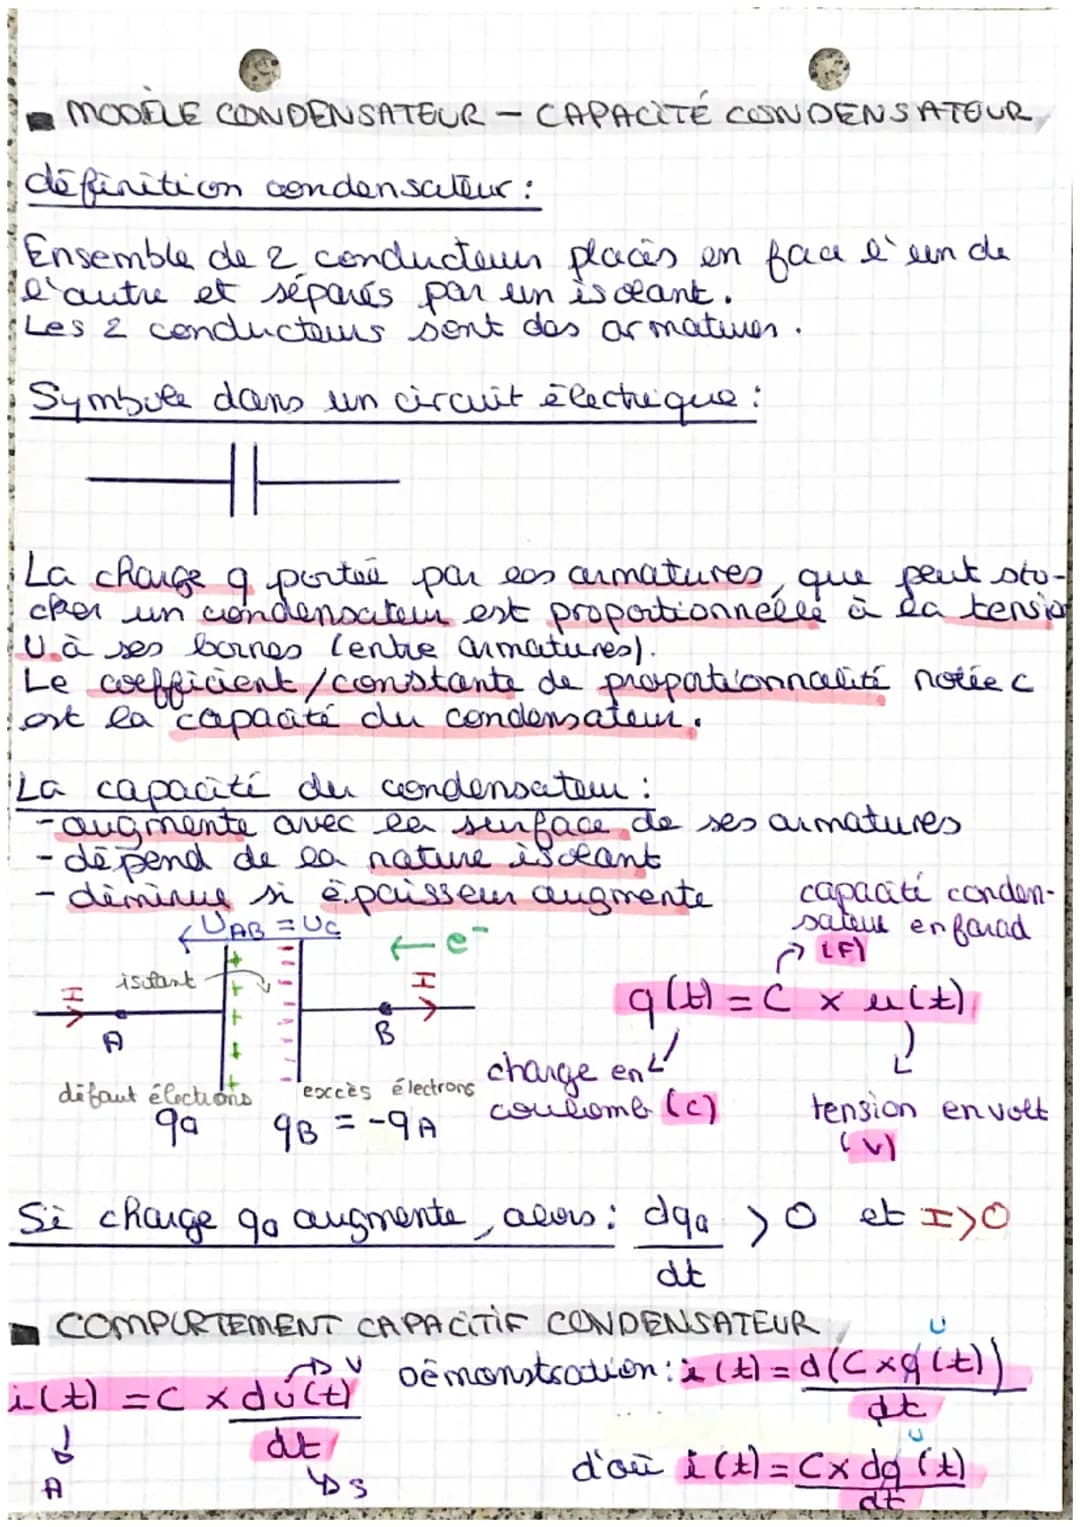 MODÈLE CONDENSATEUR - CAPACITÉ CONDENSATEUR
définition condensateur :
Ensemble de 2 conducteurs placés en face l'un de
l'autre et séparés par un isolant.
Les 2 conducteurs sont des armatures.
Symbole dans un circuit électrique :
La charge q portée par les armatures, que peut sto-
cker un condensateur est proportionnelle à la tension
U à ses bornes (entre armatures).
Le coefficient/constante de proportionnalité notée C
est la capacité du condensateur.
La capacité du condensateur :
- augmente avec la surface de ses armatures
- dépend de la nature isolant
- diminue si épaisseur augmente
capacité conden-
sateur en farad
(F)
UAB = UC
e-
isolant
I
I
A
B
q(t) = C x u(t)
charge en
coulomb (C)
tension en volt
(V)
défaut électrons
excès électrons
qa
qB = -qA
Si charge qa augmente, alors : dqa/dt > 0 et I>0
COMPORTEMENT CAPACITIF CONDENSATEUR
i(t) = C x du(t)/dt
V
A
s
Démonstration : i(t) = d(C x q(t))/dt
U
d'où i(t) = C x dq(t)/dt
U